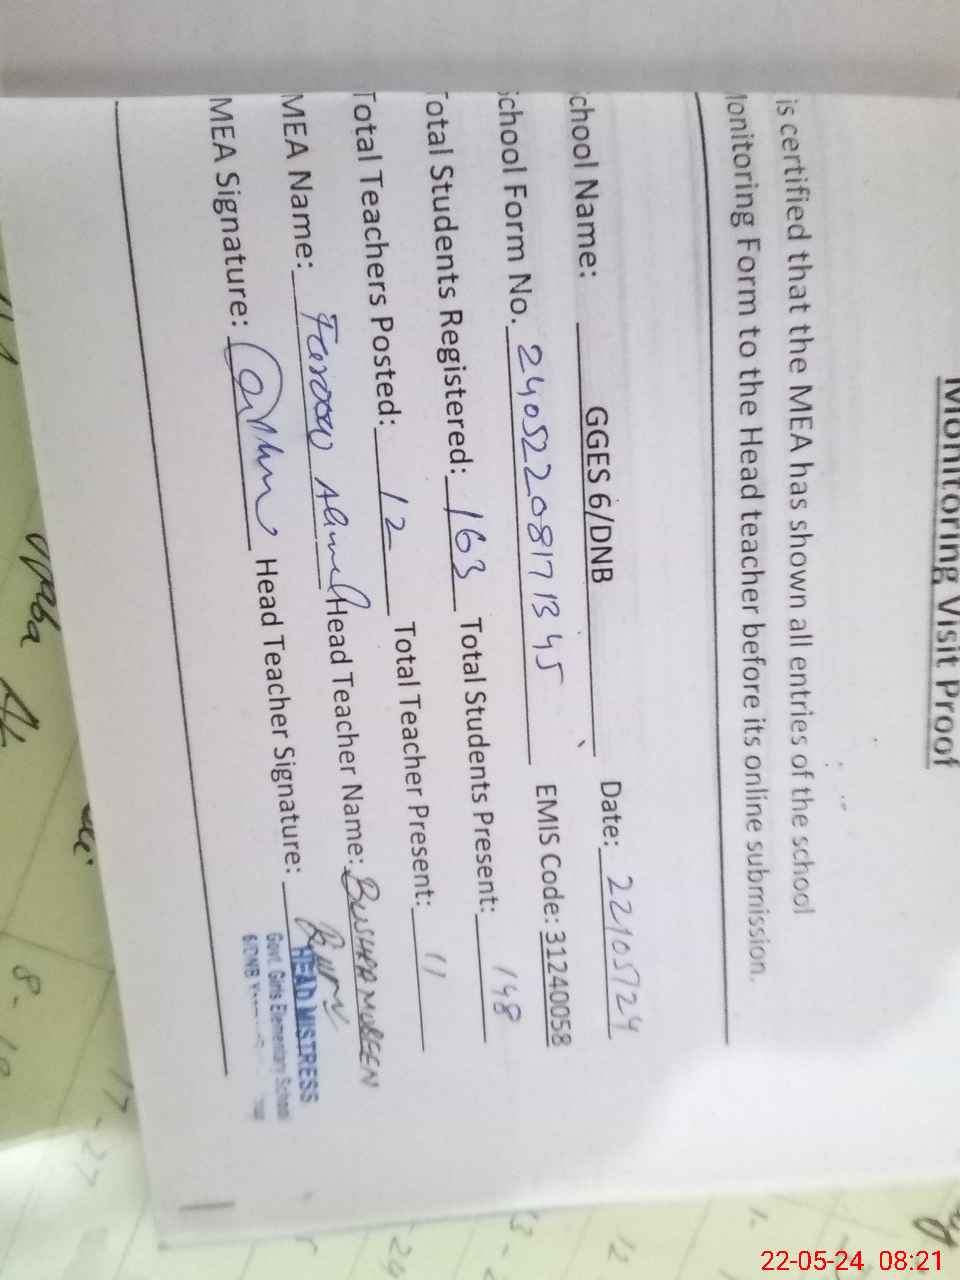 Monitoring Visit Proof
is certified that the MEA has shown all entries of the school
Monitoring Form to the Head teacher before its online submission.
School Name: GGES 6/DNB Date: 22/05/24
School Form No. 24052208171345 EMIS Code: 31240058
Total Students Registered: 163 Total Students Present: 148
Total Teachers Posted: 12 Total Teacher Present: 11
MEA Name: Farooq Ahmed Head Teacher Name: BUSHRA
MEA Signature: Head Teacher Signature:
HEAD MISTRESS
Govt. Girls Elementary School
6/DNB
22-05-24 08:21